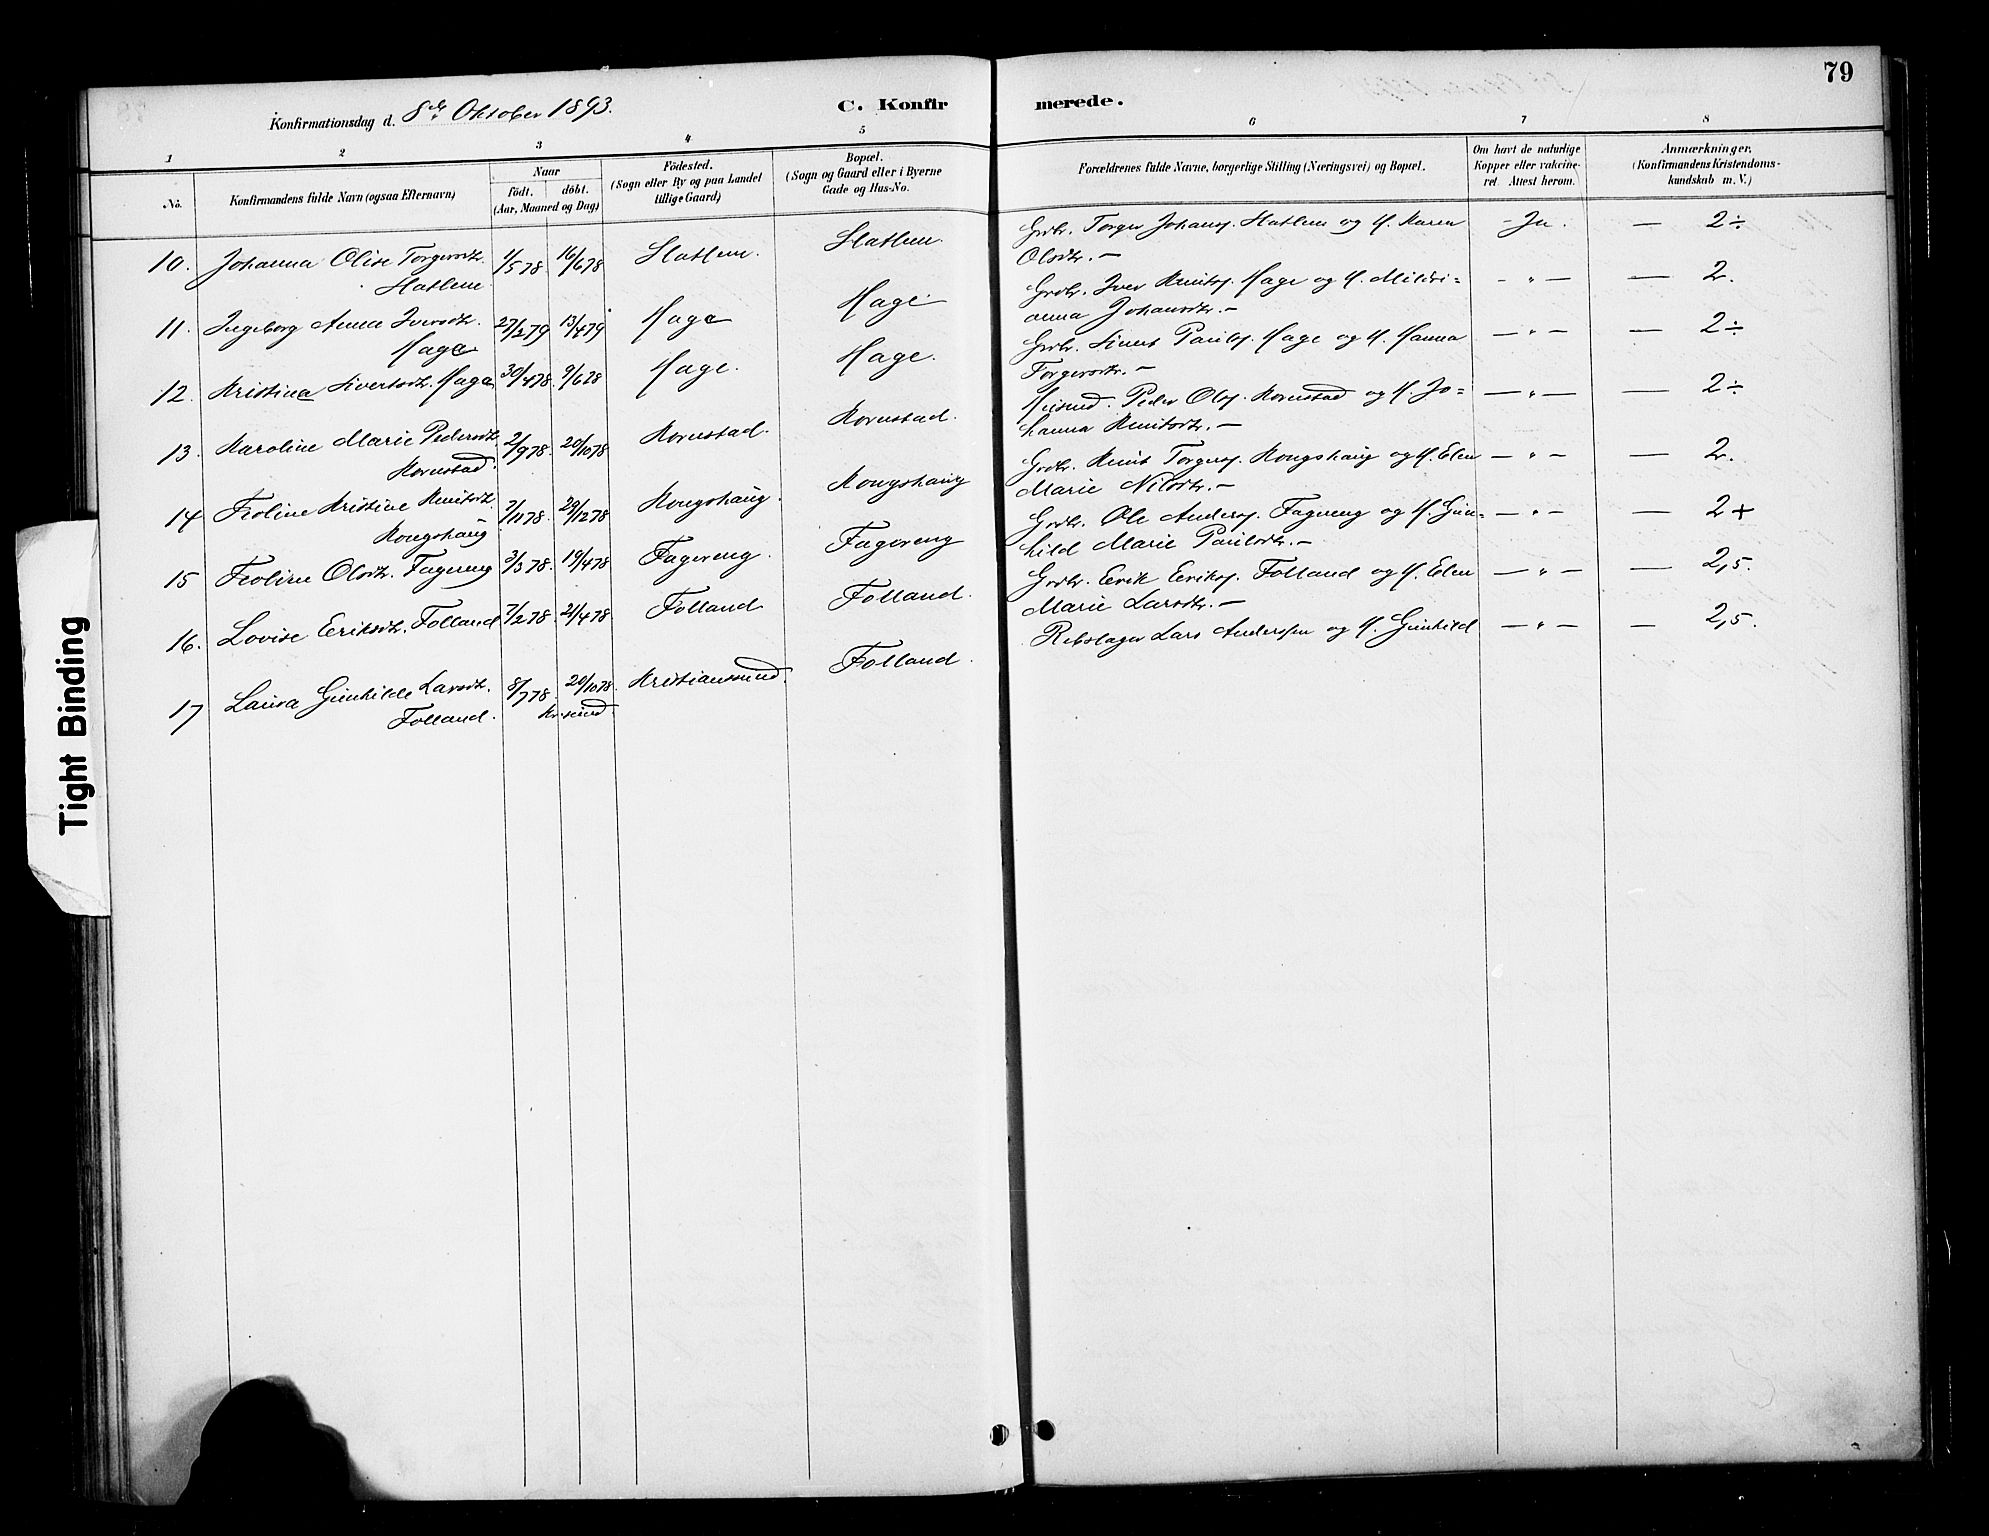 79
Konfirmationsdag d. 8de Oktober 1893.
C. Konfirmerede.
1 2 3 4 5 6 7 8
No. Konfirmandens fulde Navn (ogsaa Efternavn) Naar födt. döbt. (Aar, Maaned og Dag) Födested. (Sogn eller By og paa Landet tillige Gaard) Bopæl. (Sogn og Gaard eller i Byerne Gade og Hus-No. Forældrenes fulde Navne, borgerlige Stilling (Næringsvei) og Bopæl. Om havt de naturlige Kopper eller vakcineret. Attest herom. Anmærkninger. (Konfirmandens Kristendomskundskab m. V.)
10. Johanna Olise Torgersdtr. 1/5 78. 16/6 78 Hatlem. Hatlem. Grdbr. Torger Johans. Hatlem og H. Karen - Ja. — 2÷
Hatlem Olsdtr. —
11. Ingeborg Anna Iversdtr. 27/2 79 13/4 79 Hage Hage Grdbr. Iver Knuts. Hage og H. Mildri= - " — — 2.
Hage anna Johansdtr. —
12. Kristina Sivertsdtr. Hage 30/4 78. 9/6 78 Hage. Hage. Grdbr. Sivert Pauls. Hage og H. Hanna — " — — 2÷
Torgersdtr. —
13. Karoline Marie Pedersdtr. 2/9 78. 20/10 78 Kornstad. Kornstad. Husmd. Peder Ols. Kornstad og H. Jo= — " — — 2÷
Kornstad. hanna Knutsdtr. —
14 Feoline Kristine Knutsdtr. 7/11 78. 29/12 78 Kongshaug. Kongshaug Grdbr. Knut Torgers. Kongshaug og H. Elen — " — — 2.
Kongshaug. Marie Nilsdtr. —
15 Feoline Olsdtr. Fagereng 3/3 78. 19/4 78 Fagereng. Fagereng Grdbr. Ole Anders. Fagereng og H. Gun= — " — — 2+
hild Marie Paulsdtr. —
16. Lovise Eriksdtr. Folland 7/2 78. 21/4 78 Folland Folland. Grdbr. Erik Eriks. Folland og H. Elen — " — — 2,5.
Marie Larsdtr. —
17 Laura Gunhilde Larsdtr. 8/7 78. 20/10 78. Kristianssund. Folland. Rebslager Lars Anderssen og H. Gunhild — " — — 2,5.
Folland. Kr.sund.
Tight Binding